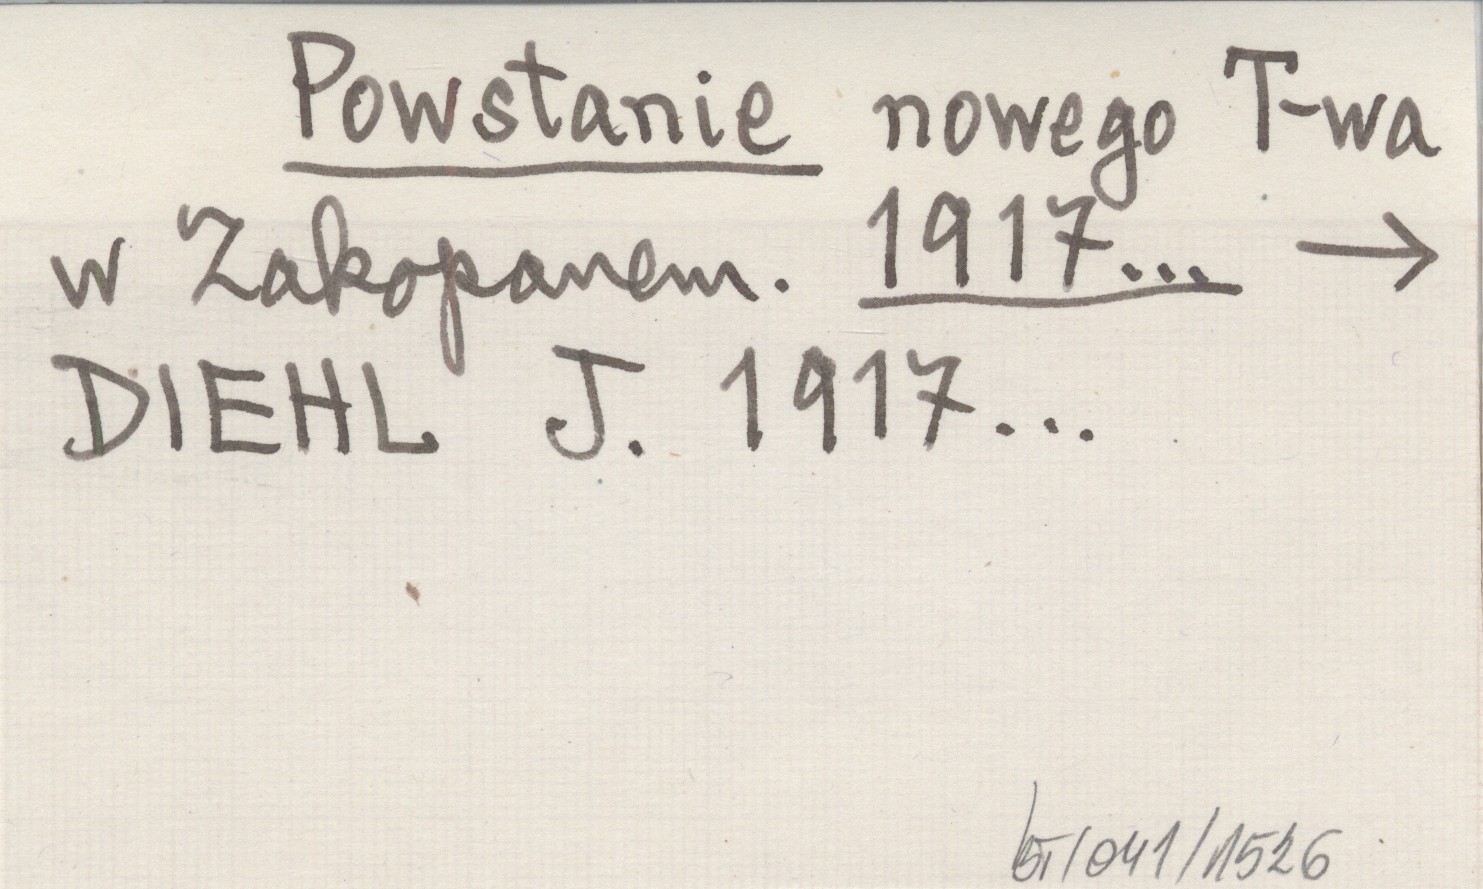 Powstanie nowego T-wa
w Zakopanem. 1917... →
DIEHL J. 1917...
/041/1526